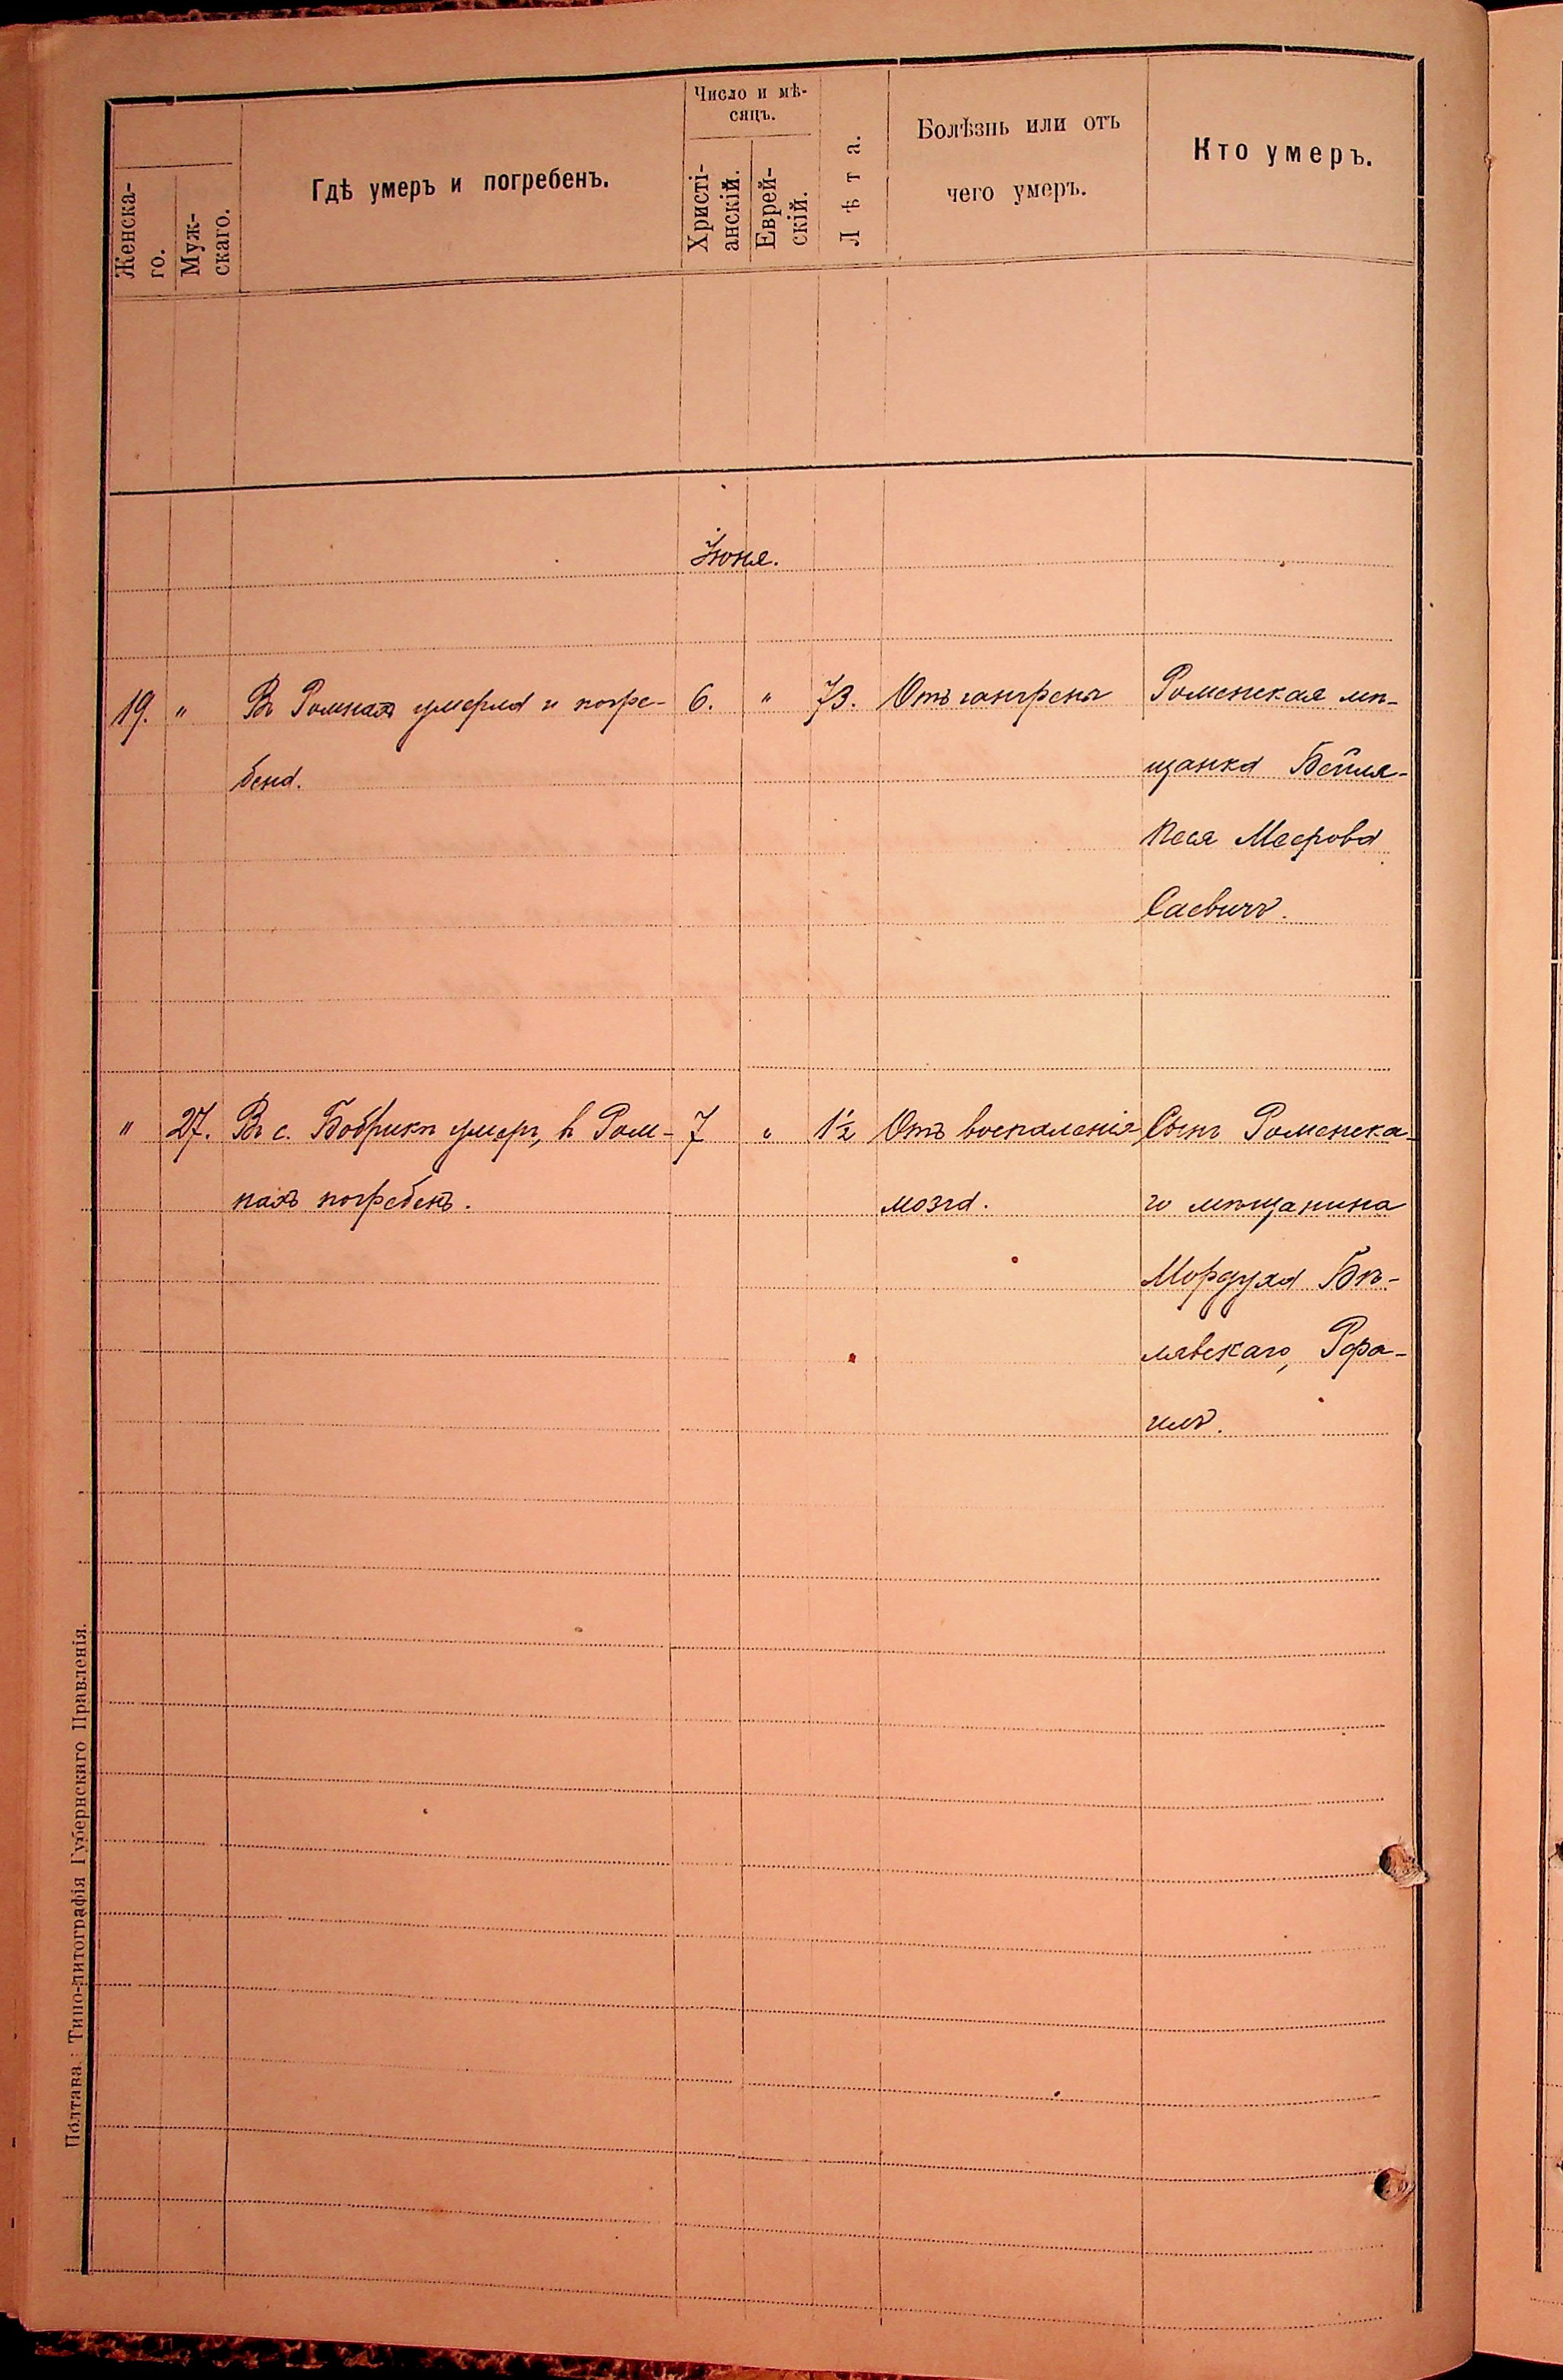 Женска-
го.
Муж-
скаго.
Гдѣ умеръ и погребенъ.
Число и мѣ-
сяцъ.
Христі-
анскій.
Еврей-
скій.
Лѣта.
Болѣзнь или отъ
чего умеръ.
Кто умеръ.
Іюня.
19. " Въ Ромнахъ умерла и погре- 6. " 73. Отъ гангрены Роменская мѣ-
бена. щанка Бейля-
Песя Меерова
Саевичъ.
" 27. Въ с. Бобрикѣ умеръ, в Ром- 7 " 1½ Отъ воспаленія Сынъ Роменска-
нахъ погребенъ. мозга. го мѣщанина
Мордуха Бѣ-
лявскаго, Рафа-
илъ.
Полтава. Типо-литографія Губернскаго Правленія.